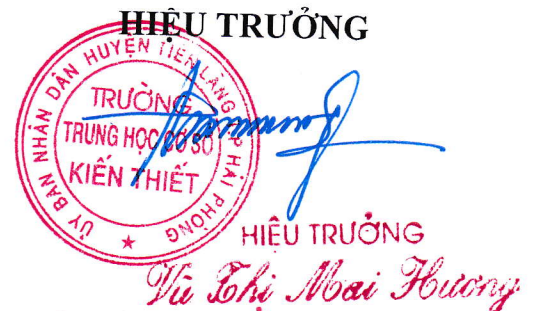 HIỆU TRƯỞNG
ỦY BAN NHÂN DÂN HUYỆN TIÊN LÃNG TP HẢI PHÒNG
TRƯỜNG
TRUNG HỌC CƠ SỞ
KIẾN THIẾT
HIỆU TRƯỞNG
Vũ Thị Mai Hương